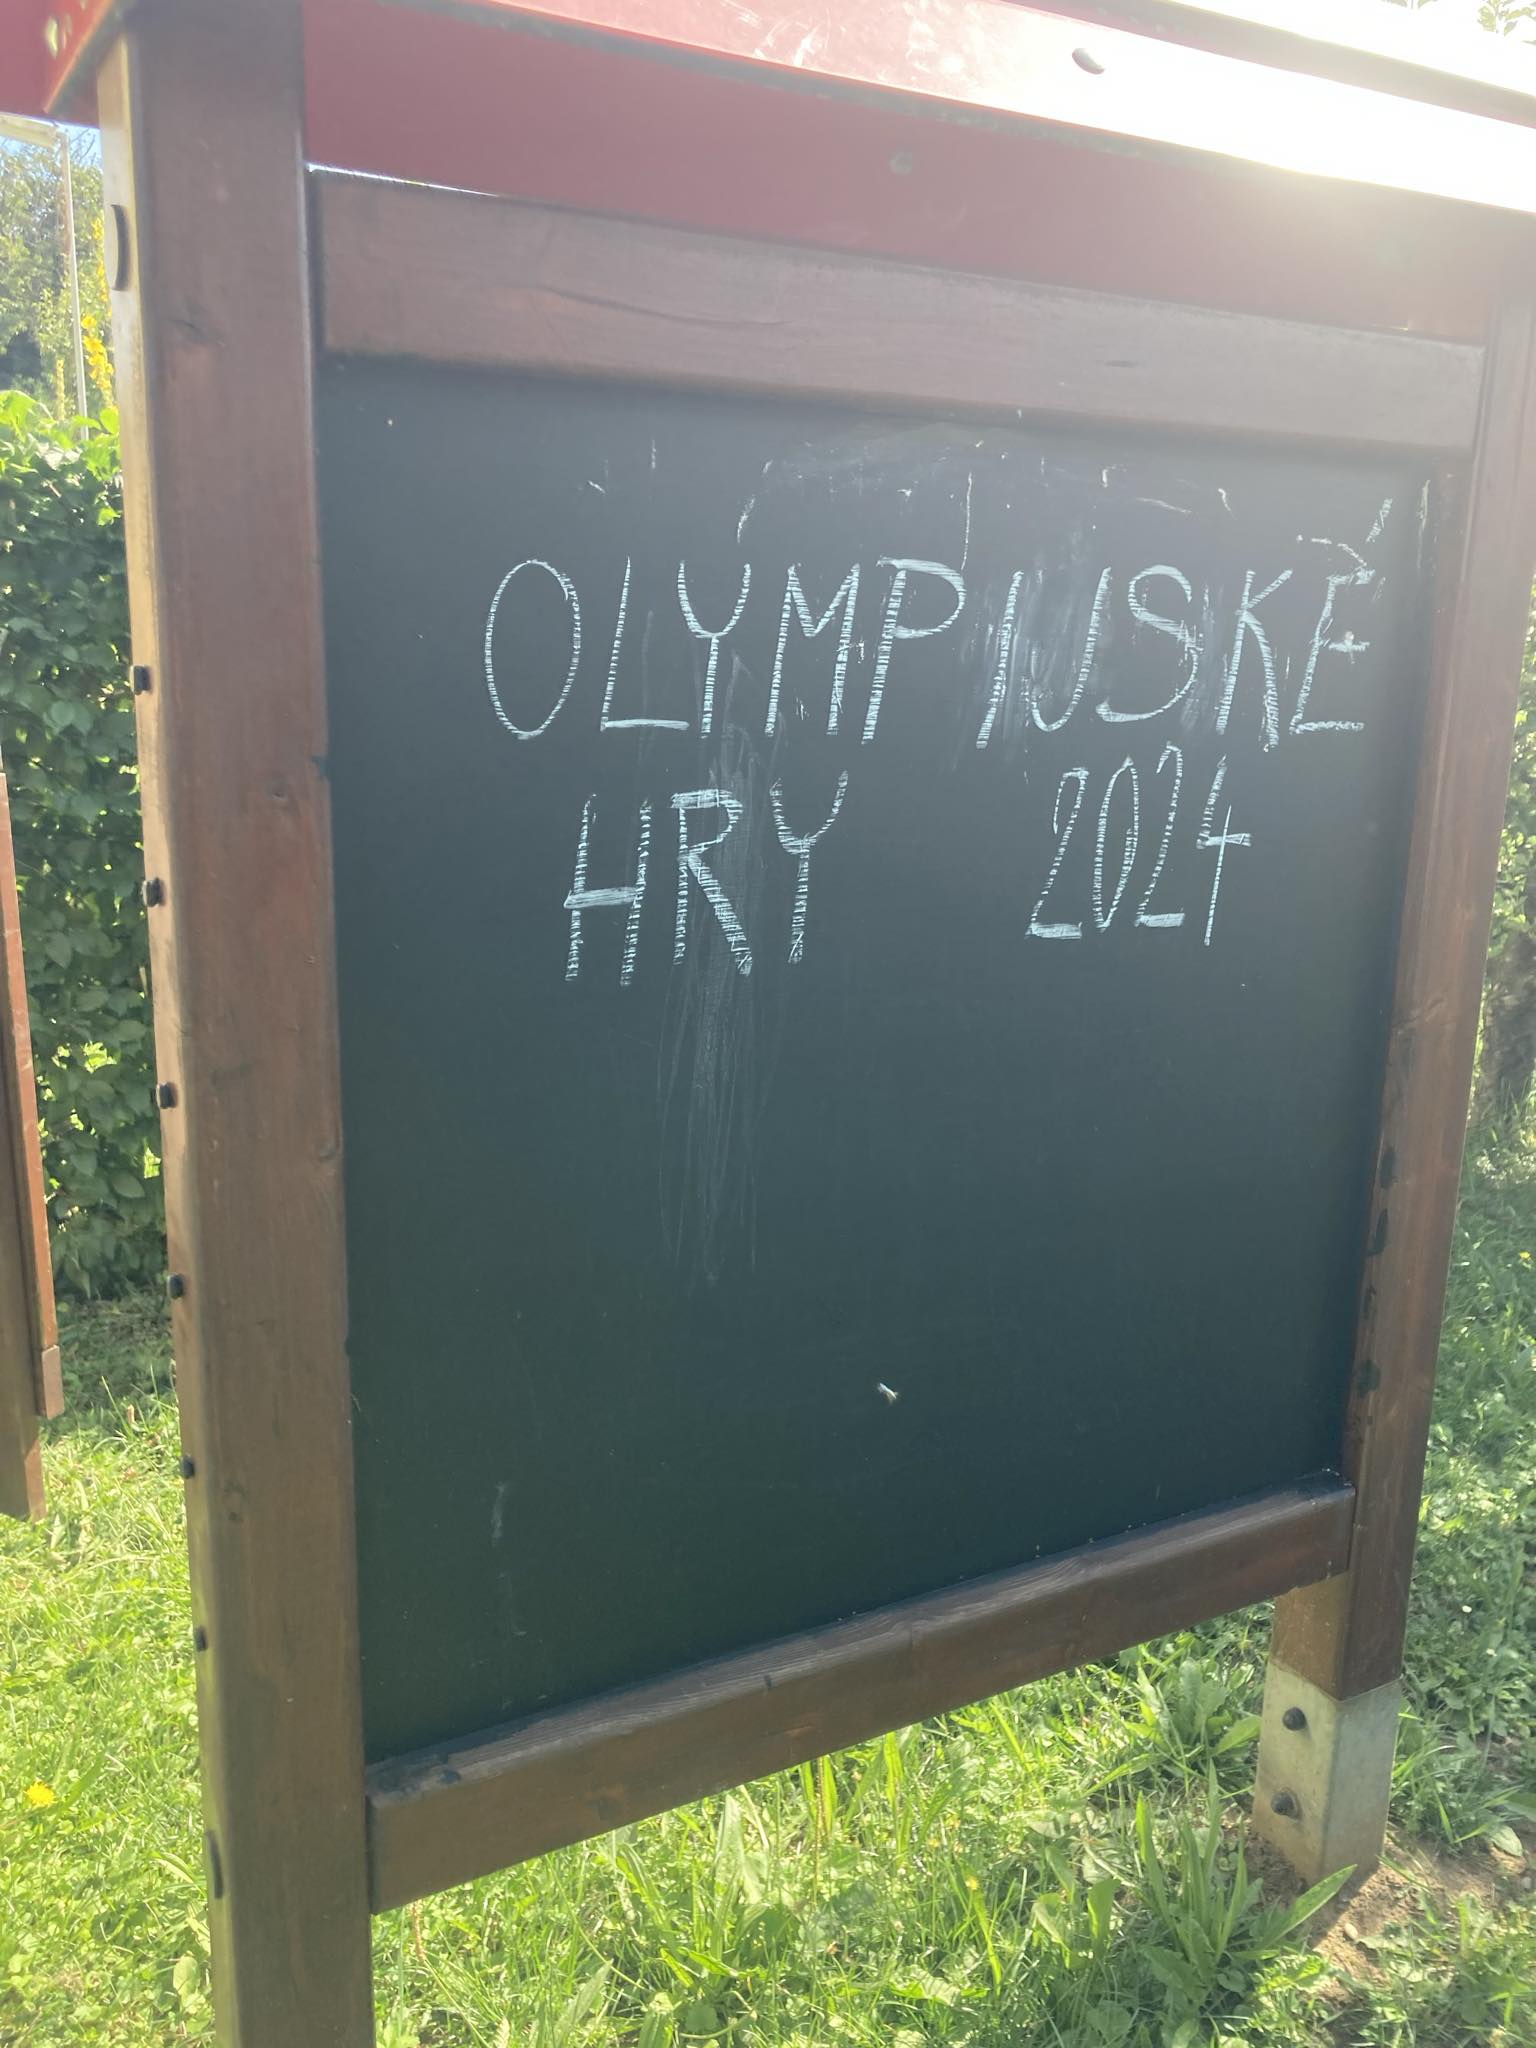 OLYMPIJSKÉ
HRY 2024